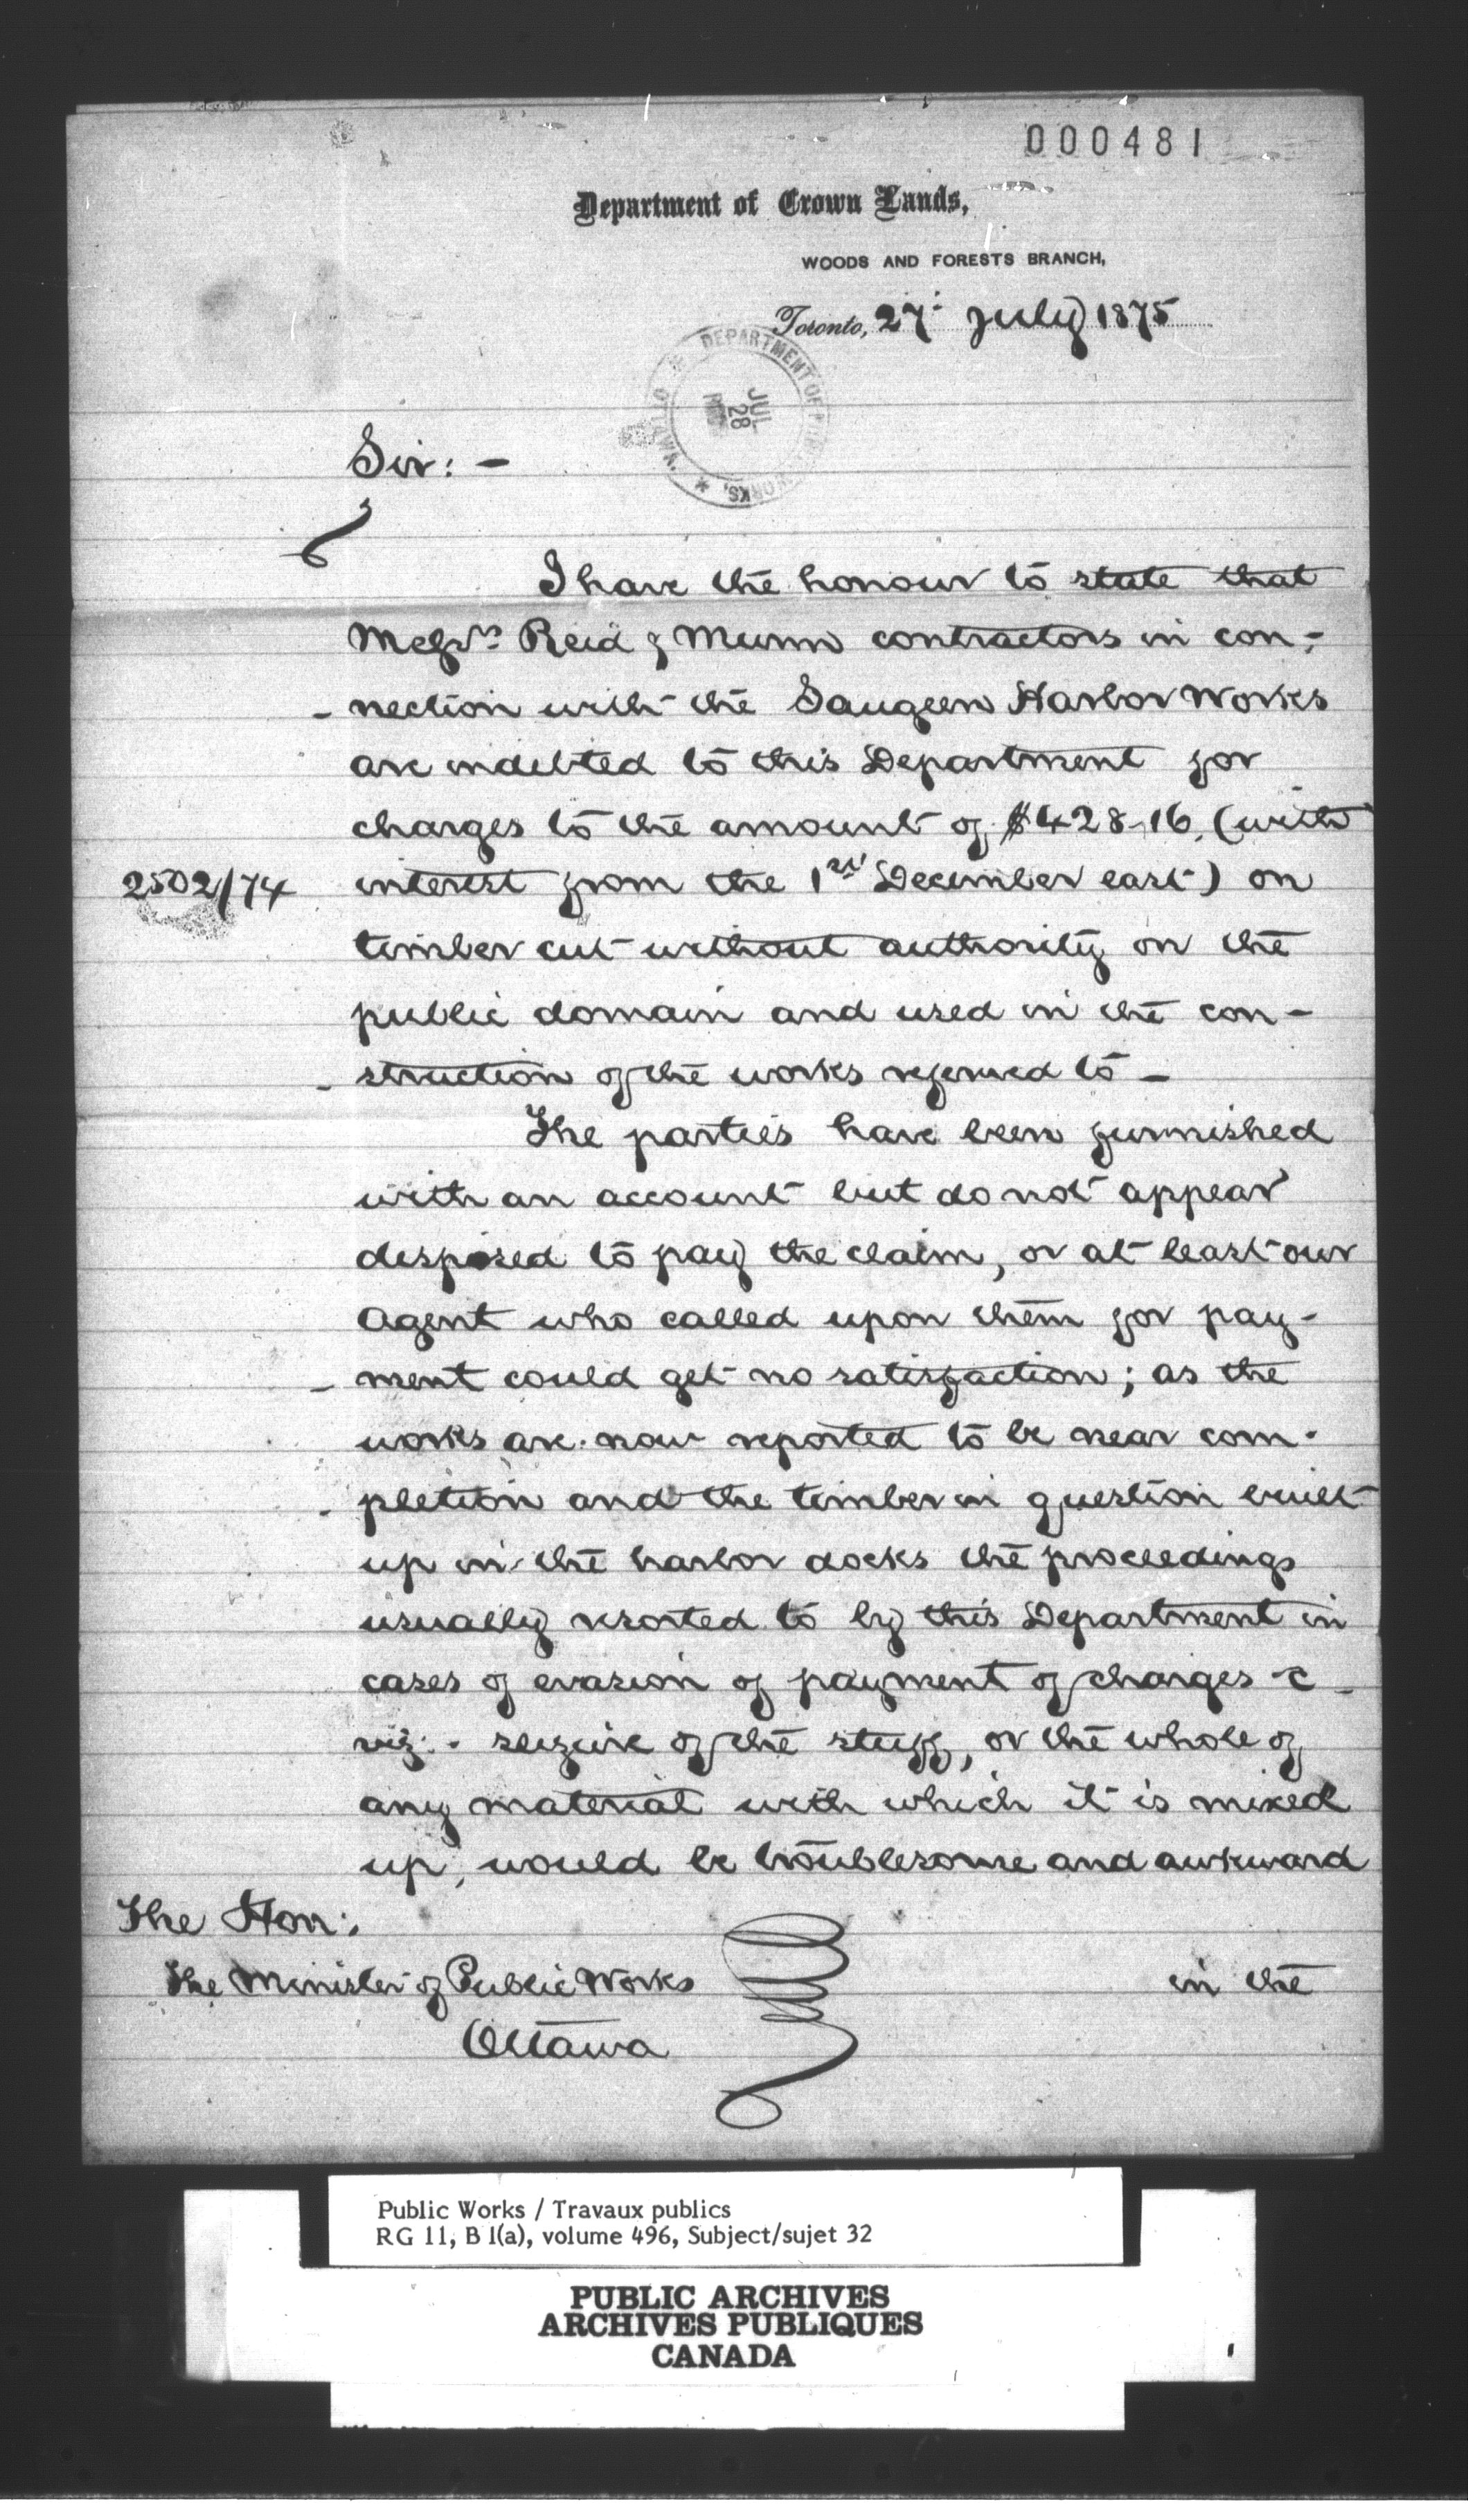 000481
Department of Crown Lands,
WOODS AND FORESTS BRANCH,
Toronto, 27 July 1875
DEPARTMENT OF PUBLIC WORKS,
JUL
28
Sir: -
I have the honour to state that
Messrs Reid & Munn contractors in con-
- nection with the Saugeen Harbor Works
are indebted to this Department for
charges to the amount of $428.16 (with
2502/74
interest from the 1st December last) on
timber cut without authority on the
public domain and used in the con-
- struction of the works referred to -
The parties have been furnished
with an account but do not appear
disposed to pay the claim, or at least our
Agent who called upon them for pay-
- ment could get no satisfaction; as the
works are now reported to be near com-
- pletion and the timber in question built
up in the harbor docks the proceedings
usually resorted to by this Department in
cases of evasion of payment of charges &c -
viz: - seizure of the stuff, or the whole of
any material with which it is mixed
up, would be troublesome and awkward
The Hon:
The Minister of Public Works
in the
Ottawa
Public Works / Travaux publics
RG 11, B 1(a), volume 496, Subject/sujet 32
PUBLIC ARCHIVES
ARCHIVES PUBLIQUES
CANADA